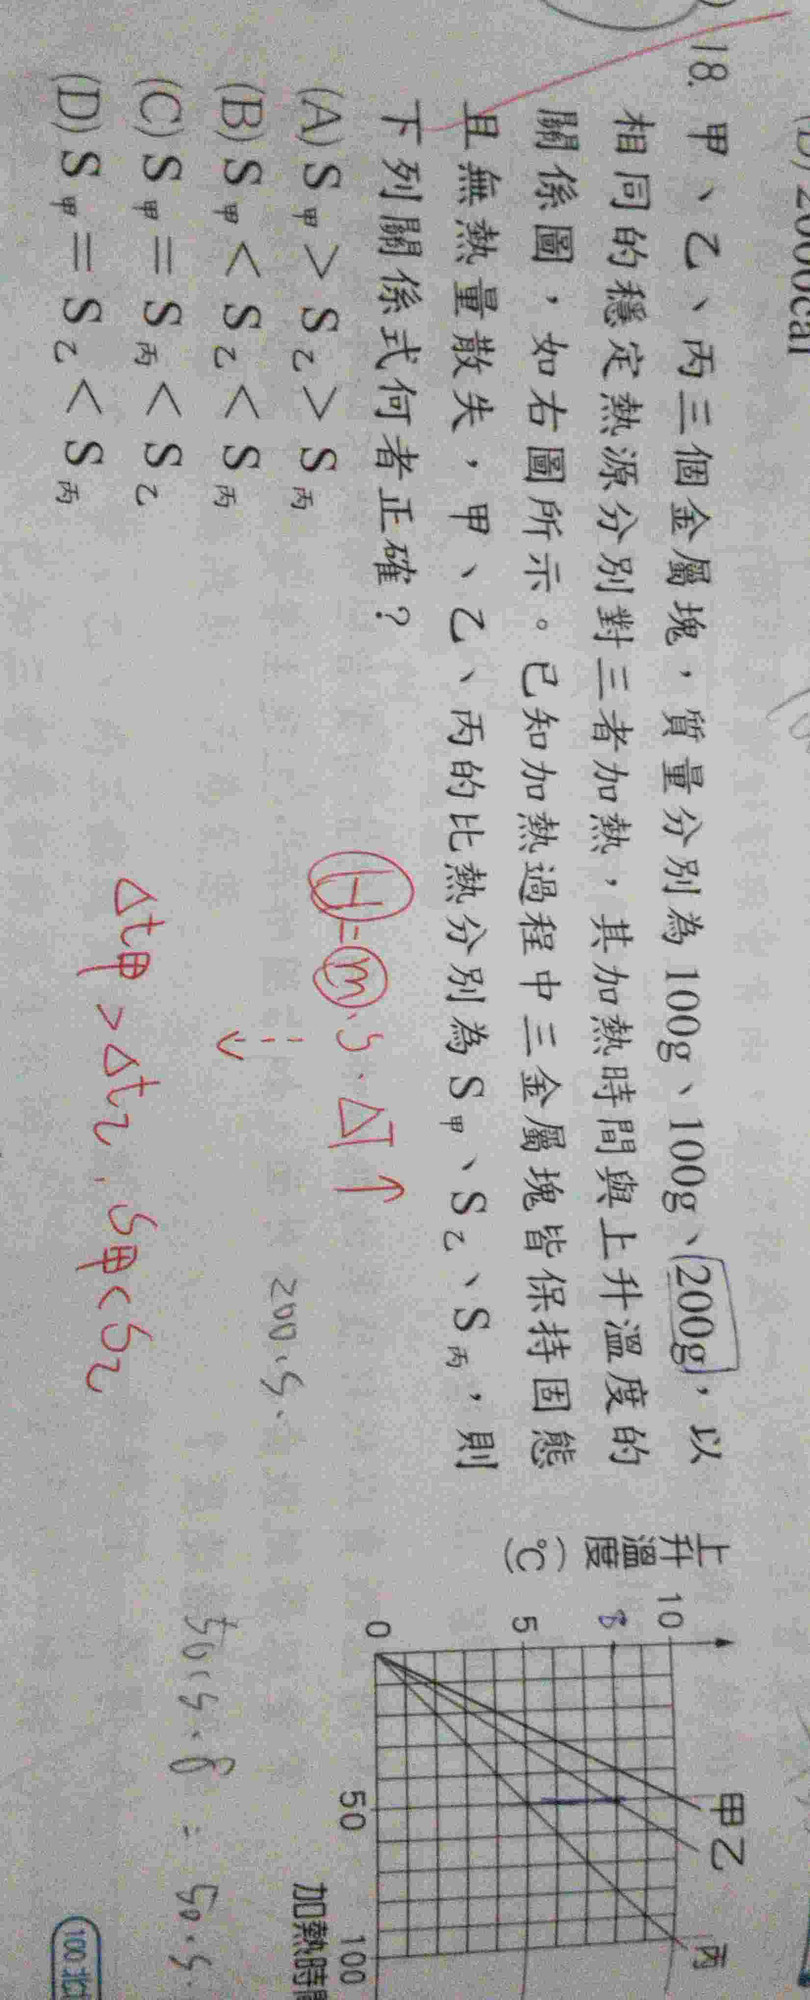 (D) 2000cal
18. 甲、乙、丙三個金屬塊，質量分別為100g、100g、200g，以
相同的穩定熱源分別對三者加熱，其加熱時間與上升溫度的
關係圖，如右圖所示。已知加熱過程中三金屬塊皆保持固態
且無熱量散失，甲、乙、丙的比熱分別為S甲、S乙、S丙，則
下列關係式何者正確？
(A) S甲＞S乙＞S丙
(B) S甲＜S乙＜S丙
(C) S甲＝S丙＜S乙
(D) S甲＝S乙＜S丙
H=m·S·ΔT↑
200·S·
Δt甲>Δt乙, S甲<S乙
50·S·8 = 50·S·
上升溫度(℃)
10
8
5
0
50
100
甲
乙
丙
加熱時間
100.北